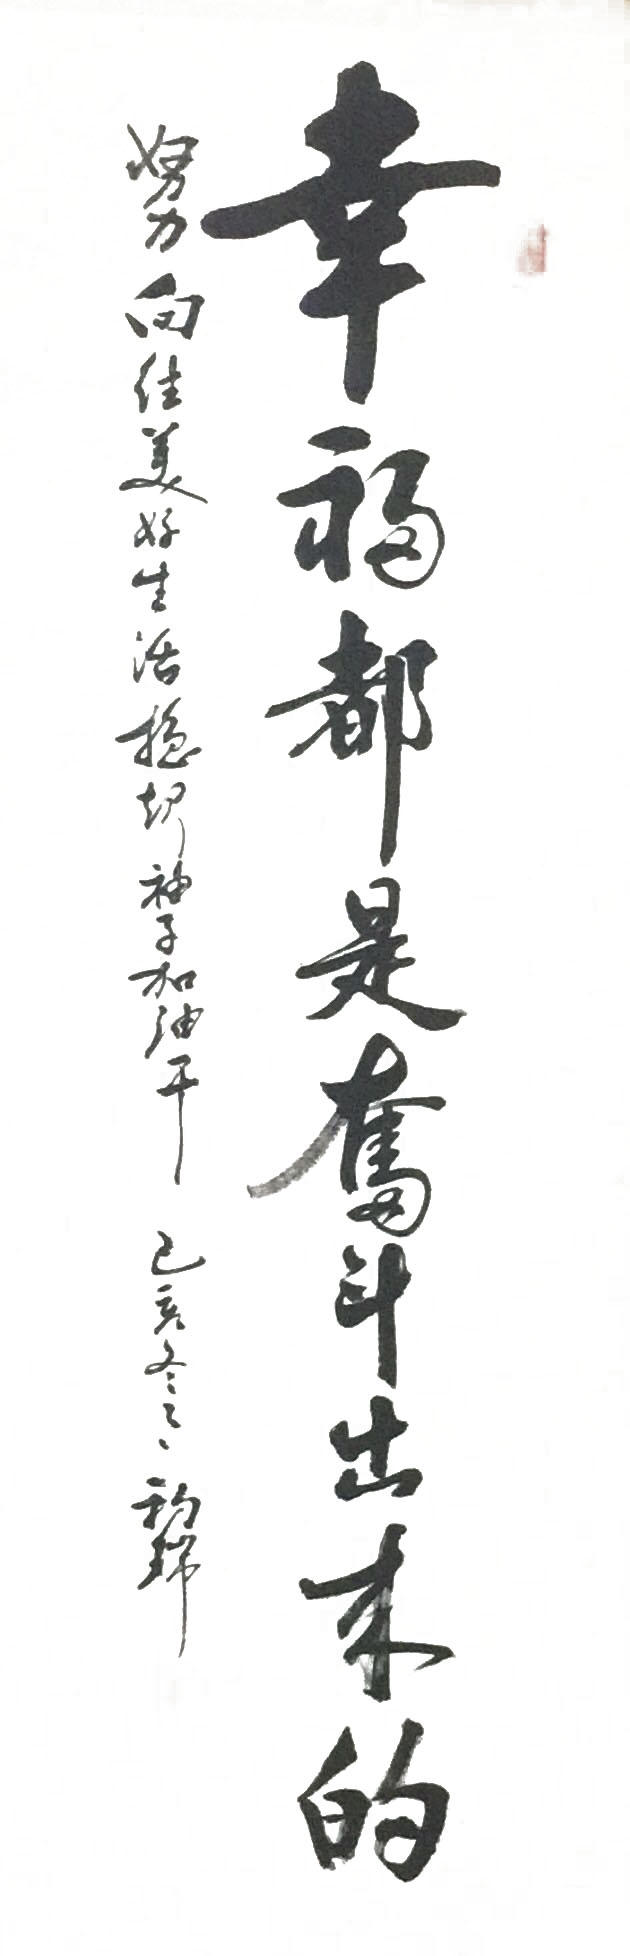 幸福都是奮斗出来的
努力向往美好生活起袖子加油干 己亥冬